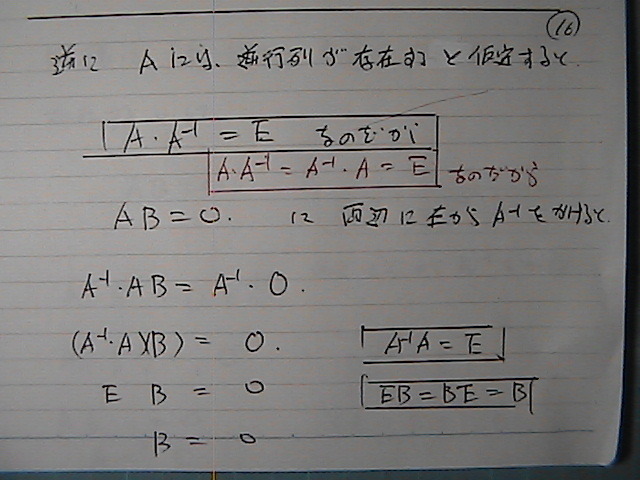 (16)
逆に Aには、逆行列が存在すると仮定すると
A・A⁻¹ = E なのだから
A・A⁻¹ = A⁻¹・A = E なのだから
AB = 0. に 両辺に左から A⁻¹をかけると
A⁻¹・AB = A⁻¹・0.
(A⁻¹・A)(B) = 0. A⁻¹A = E
E B = 0 EB = BE = B
B = 0